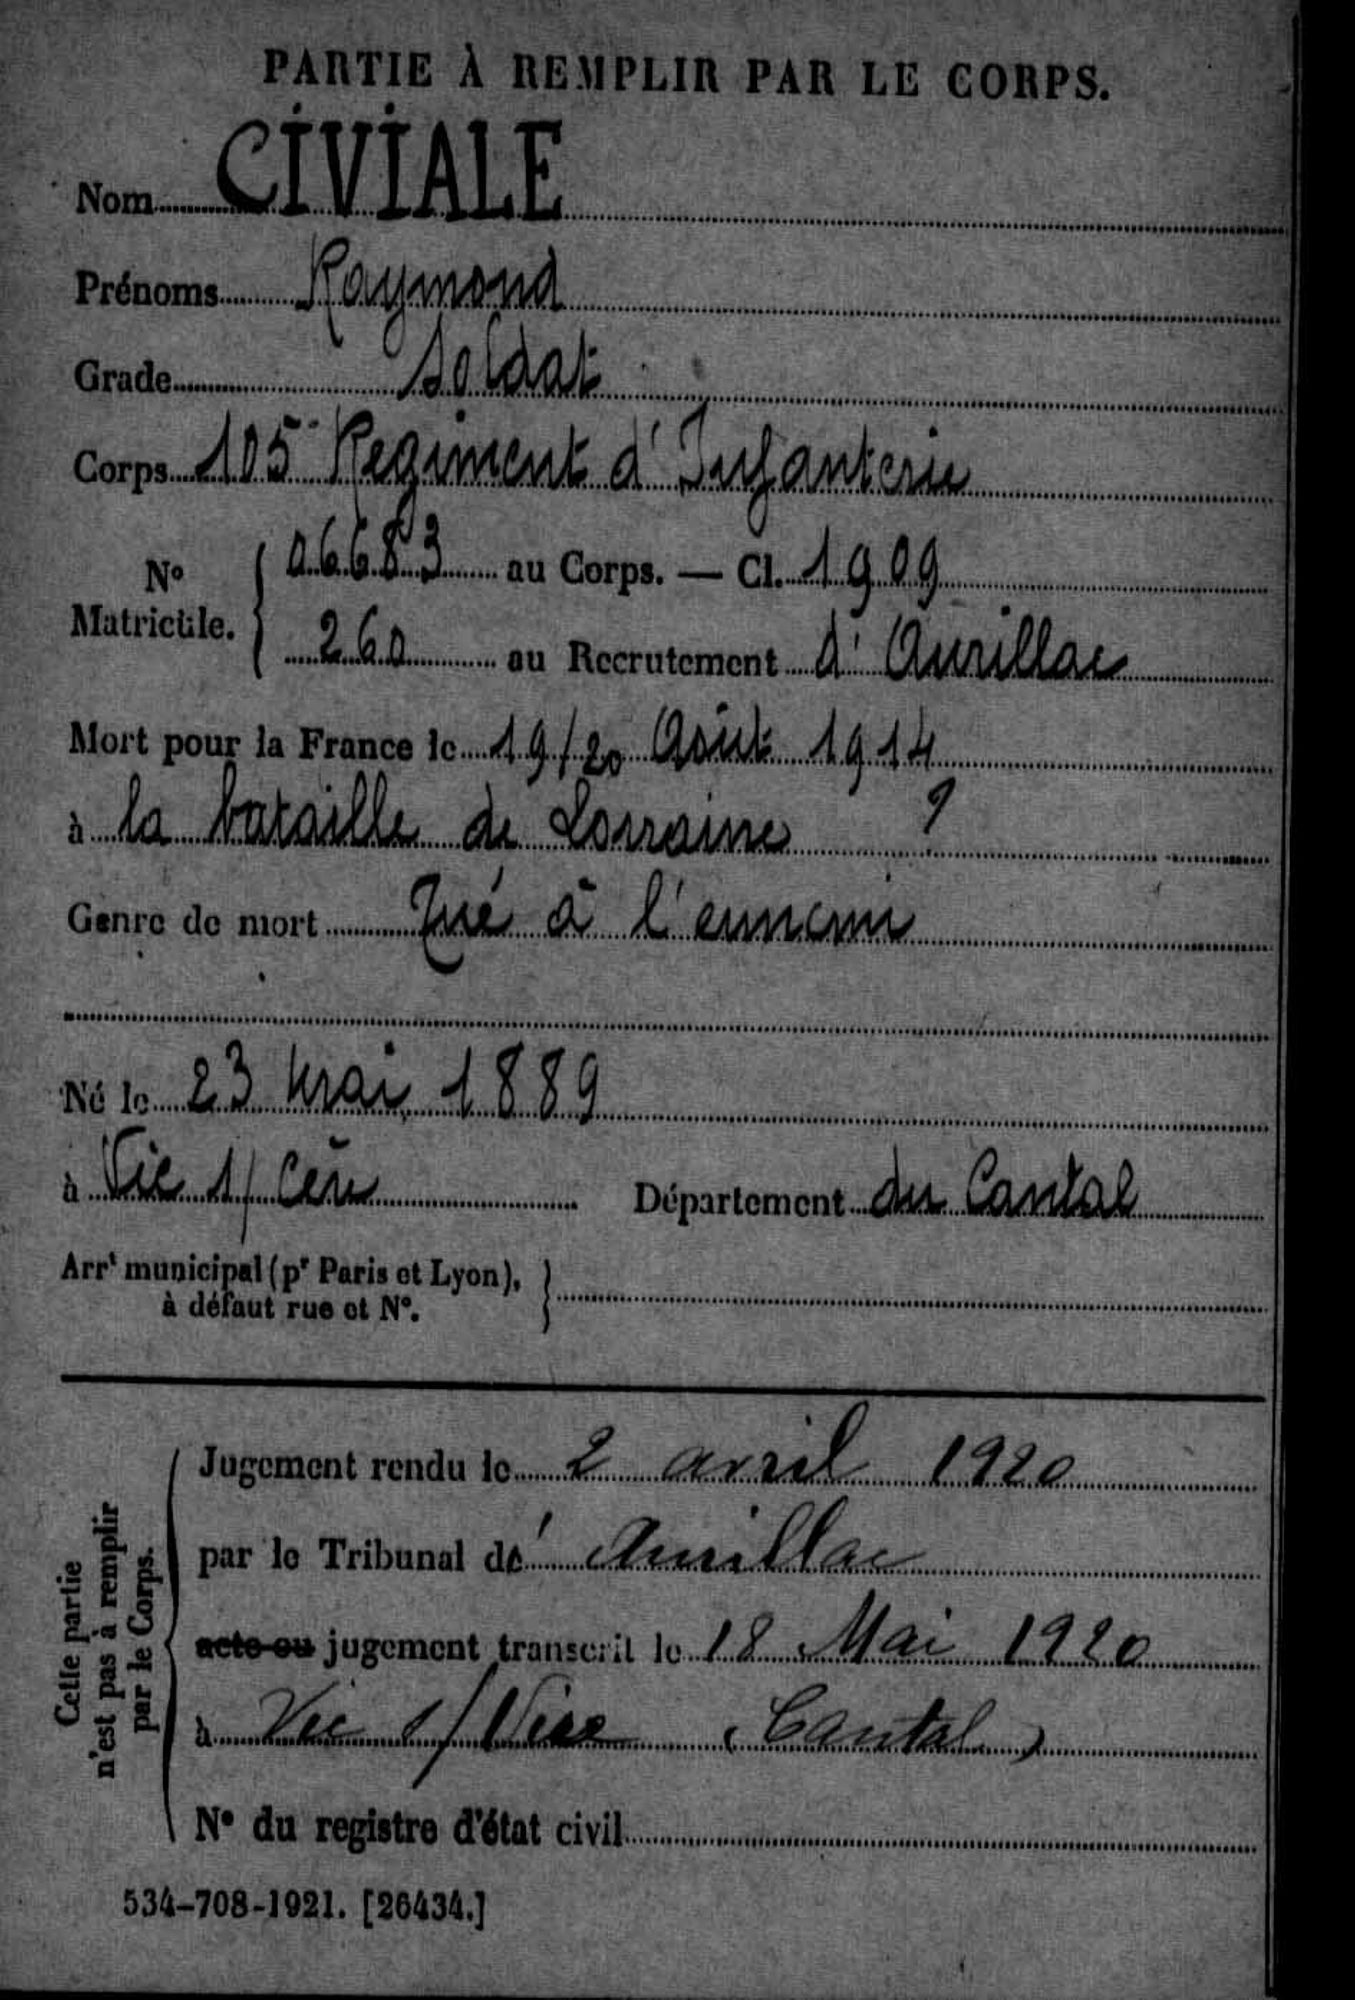 PARTIE À REMPLIR PAR LE CORPS.
Nom CIVIALE
Prénoms Raymond
Grade Soldat
Corps 105e Régiment d'Infanterie
No Matricule. { 06683 au Corps. — Cl. 1909
260 au Recrutement d'Aurillac
Mort pour la France le 19/20 Août 1914
à la bataille de Lorraine ?
Genre de mort Tué à l'ennemi
Né le 23 Mai 1889
à Vic s/ Cère Département du Cantal
Arrt municipal (pr Paris et Lyon), à défaut rue et No. }
Cette partie n'est pas à remplir par le Corps.
Jugement rendu le 2 avril 1920
par le Tribunal d' Aurillac
acte ou jugement transcrit le 18 Mai 1920
à Vic s/ (Cantal)
No du registre d'état civil
534-708-1921. [26434.]